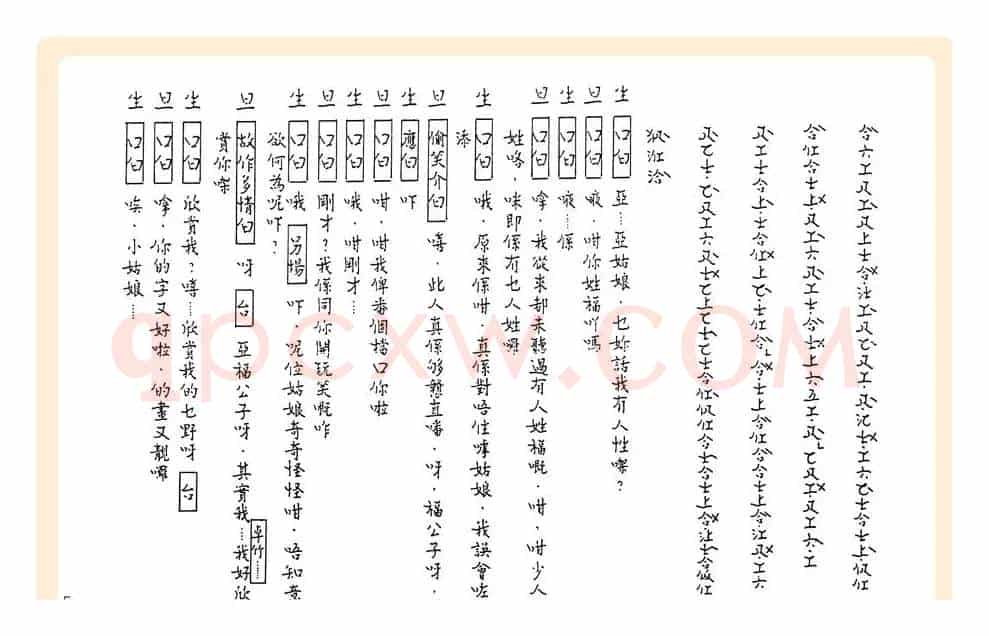 合六工尺乂尺上士合注工尺乙尺工·尺氾士·工六乙士合士上·伬仜
合仜合士上尺工六尺工士·合士上六五工·尺乙尺工尺工六·工
尺工士合上·士合仜上乙·士仜合合·士上合仜合合士上合·江尺工六
尺乙士·乙尺工六·尺士乙上乙士乙士合仜伬仜合士合士上合·江士合伬仜
伬仜合
生 口白 亞…亞姑娘·乜妳話我有人性㗎？
旦 口白 哦·咁你姓福吖嗎
生 口白 哦……係
旦 口白 嗱·我從來都未聽過有人姓福嘅·咁·咁少人
姓咯·咪即係冇乜人姓囉
生 口白 哦·原來係咁·真係對唔住嘑姑娘·我誤會咗
添
旦 偷笑介白 嘻·此人真係够戇直噃·呀·福公子呀·
生 應白 吓
旦 口白 咁·咁我俾番個檔口你啦
生 口白 哦·咁剛才…
旦 口白 剛才？我係同你開玩笑嘅咋
生 口白 哦 另場 吓·呢位姑娘奇奇怪怪咁·唔知意
欲何為呢吓？
旦 故作多情白 呀 台 亞福公子呀·其實我……我好欣
卓竹……
賞你㗎
生 口白 欣賞我？噚……欣賞我的乜野呀 台
旦 口白 嗱·你的字又好啦·的畫又靚囉
生 口白 唉·小姑娘…
qpcxw.com